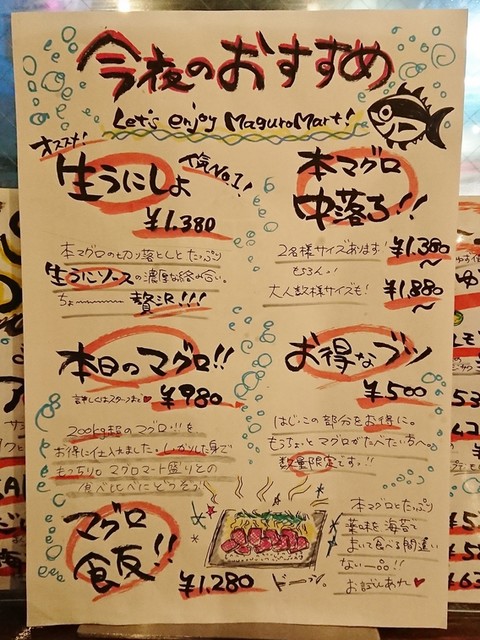 今夜のおすすめ
Let's enjoy MaguroMart!
オススメ!
人気No.1!
生うにしょ
¥1.380
本マグロの切り落としとたっぷり
生うにソースの濃厚な絡み合い。
ちょ〜〜〜 贅沢!!!
本マグロ
中落ち!!
2名様サイズあります! ¥1.380〜
もちろん!!
大人数様サイズも! ¥1.880〜
本日のマグロ!!
詳しくはスタッフまで♥ ¥980
200kg超のマグロ!!!を
お得に仕入れました。しっかりした身で
もっちり。マグロマート盛りとの
食べ比べにどうぞ♪
お得なブツ
¥500
はじっこの部分をお得に。
もうちょいとマグロがたべたい方へ。
数量限定です。!!
マグロ
¥1,280
ドーーン。
本マグロとたっぷり
薬味を海苔で
まいて食べる間違い
ない一品!!
お試しあれ♥